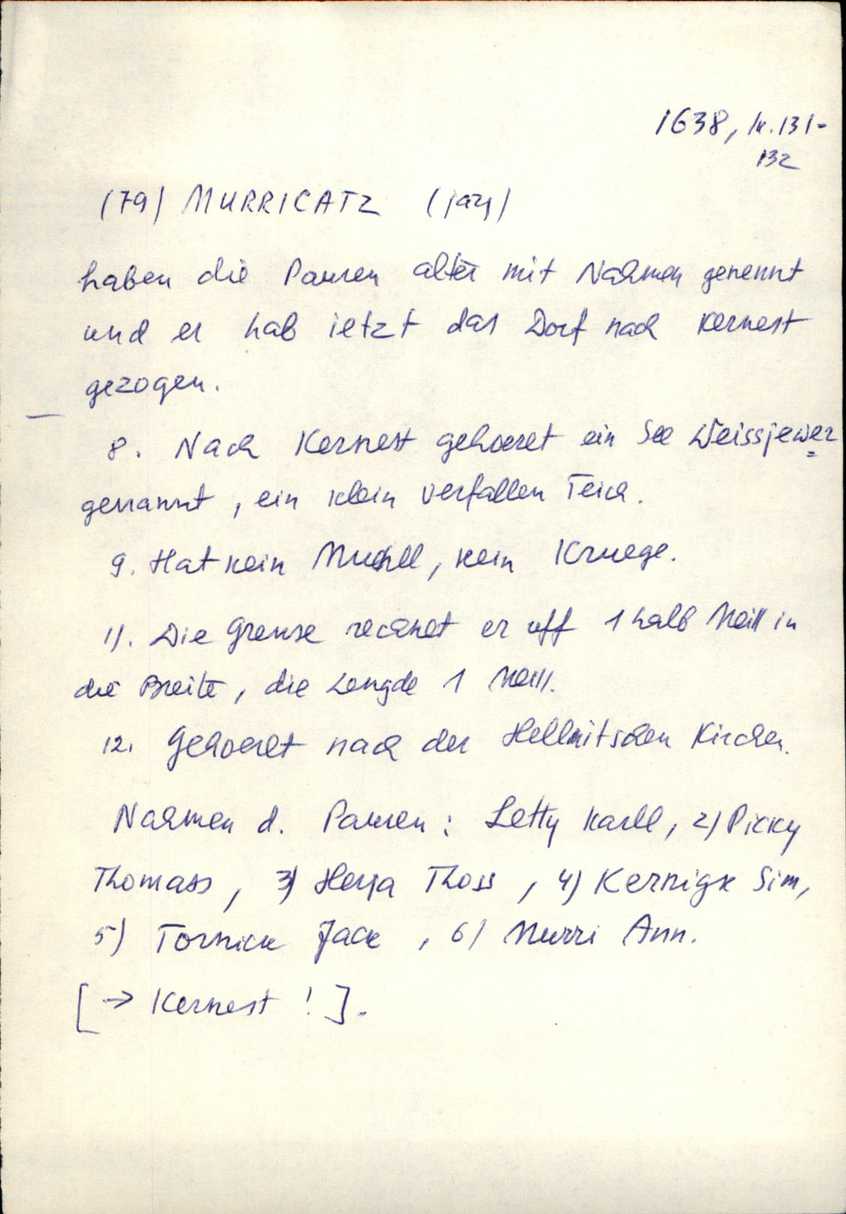 1638, lk. 131-
132
(79) MURRICATZ (järg)
haben die Pauren alter mit Nahmen genennt
und er hab ietzt das Dorf nach Kernest
gezogen.
8. Nach Kernest gehoeret ein See Weissjewer
genannt, ein klein verfallen Teich.
9. Hat kein Muehll, kein Kruege.
11. Die Grense rechnet er uff 1 halb Meill in
die Breite, die Lengde 1 Meill.
12. Gehoeret nach der Hellmitschen Kirchen.
Nahmen d. Pauren: Letty Karll, 2) Picky
Thomass, 3) Herja Thoss, 4) Kernigk Sim,
5) Tornick Jack, 6) Murri Ann.
[→ Kernest!].